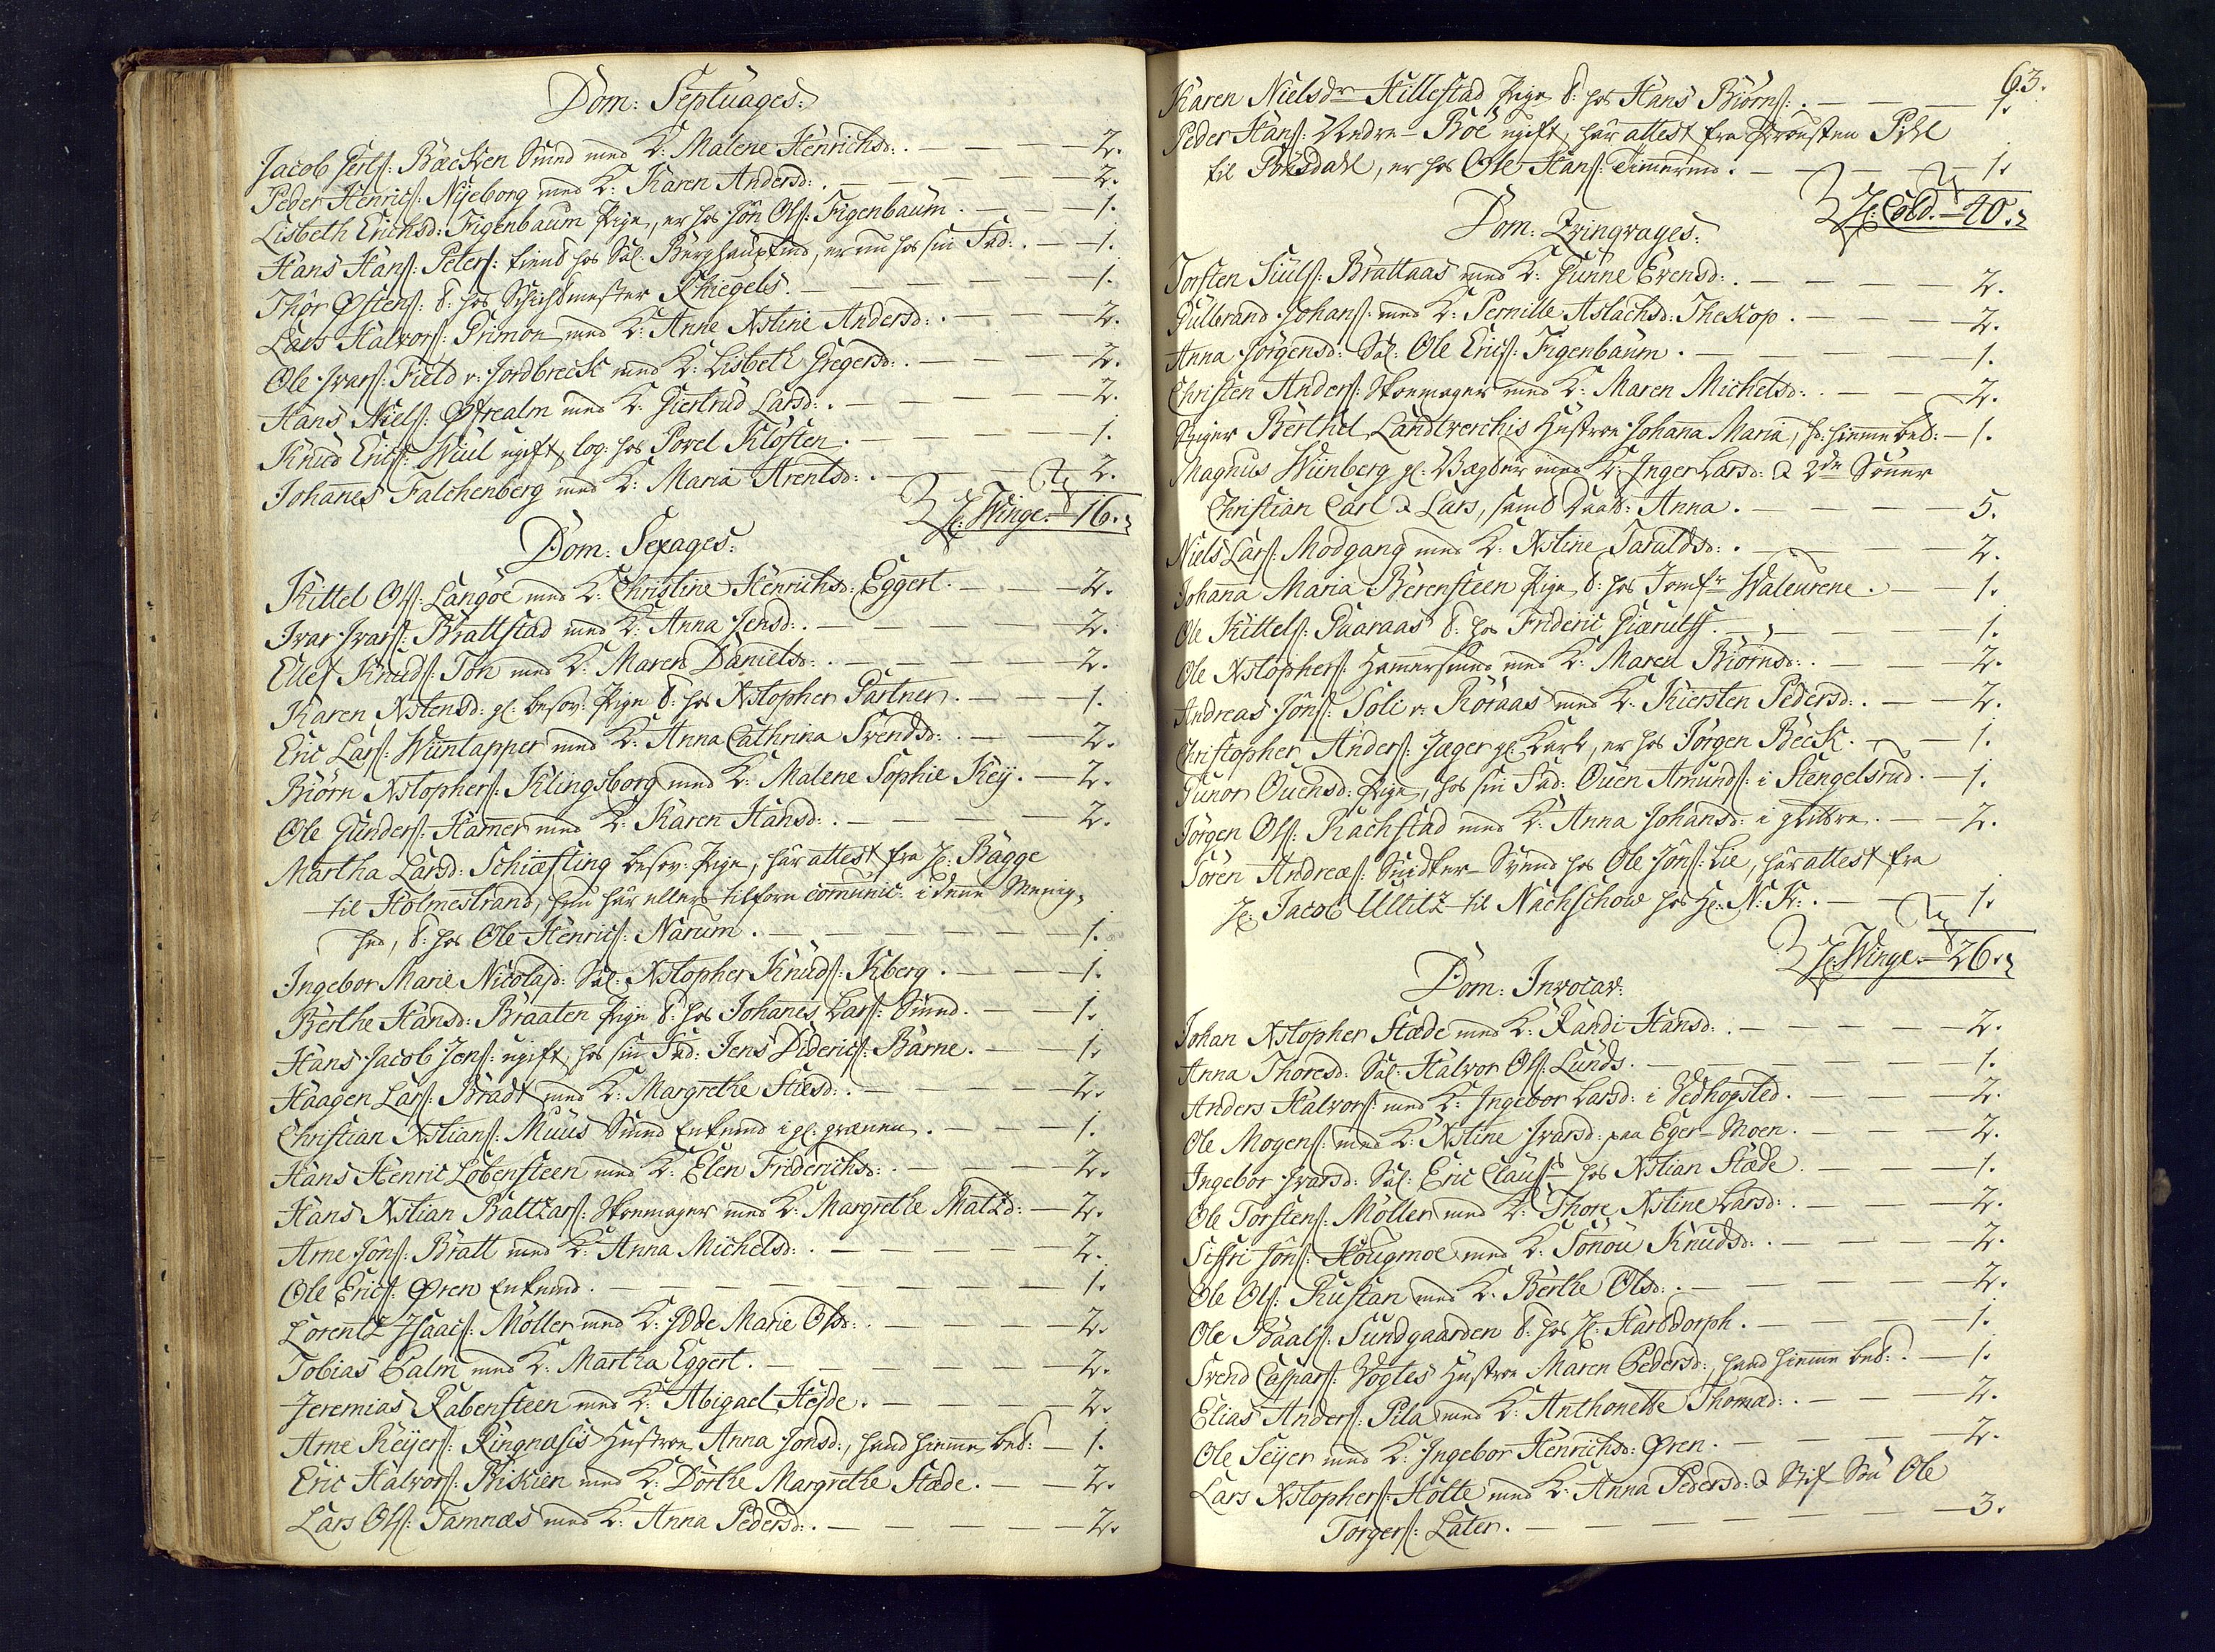 Dom: Septuages:
Jacob Gertſ: Bæcken Smed med K: Malene Henrichsd: . — — — 2.
Peder Henricſ: Nÿeborg med K: Karen Andersd: . — — — 2.
Lisbeth Erichsd: Figenbaum Pige, er hos Jôn Olſ: Figenbaum . — — 1.
Hans Hanſ: Peterſ: tient hos Sal: Berghauptmd, er nu hos sin Fad: . — 1.
Thôr Østenſ: t: hos Schichtmester Khiegels. — — — 1.
Lars Halvorſ: Primon med K: Anne Xstine Andersd: . — — — 2.
Ole Ivarſ: Field v: Jordbreck med K: Lisbeth Gregersd: . — — — 2.
Hans Nielſ: Østrealm med K: Giertrud Larsd: . — — — 2.
Knud Ericſ: Wiul ugift, log: hos Povel Klôsten. — — — 1.
Johannes Falchenberg med K: Maria Arentsd: . — — — 2.
H: Winge. — 16.
Dom: Sexages:
Kittel Olſ: Langôe med K: Christine Henrichsd: Eggert. — — 2.
Ivar Ivarſ: Brattstad med K: Anna Jensd: . — — — 2.
Ellef Knudſ: Toh med K: Maren Danielsd: . — — — 2.
Karen Xstensd: gl: besov: Pige t: hos Xstopher Partner. — — 1.
Eric Larſ: Wiintapper med K: Anna Cathrina Svendsd: . — — 2.
Biôrn Xstopherſ: Klingsborg med K: Malene Sophie Keÿ. — 2.
Ole Gunderſ: Hamer med K: Karen Hansd: . — — — 2.
Martha Larsd: Schiæfting besov: Pige, har attest fra H: Bagge
til Holmestrand, hun har ellers tilforn comunic: i denne Menig-
hed, t: hos Ole Henricſ: Narum. — — — 1.
Ingebor Marie Nicolajd: Sal: Xstopher Knudſ: Kberg. — — 1.
Berthe Hansd: Braaten Pige t: hos Johannes Larſ: Smed. — — 1.
Hans Jacob Jenſ: ugift, hos sin Fad: Jens Didericſ: Barne. — 1.
Haagen Larſ: Bradt med K: Margrethe Hæsd: . — — — 2.
Christian Xstianſ: Muus Smed Enkemd i gl: grænen. — — 1.
Hans Henric Lobensteen med K: Elen Friderichsd: . — — 2.
Hans Xstian Baltzarſ: Skoemager med K: Margrethe Matzd: — 2.
Arne Jônſ: Bratt med K: Anna Michelsd: . — — — 2.
Ole Ericſ: Øren Enkemd. — — — 1.
Lorentz Isaacſ: Môller med K: Idde Marie Olsd: . — — 2.
Tobias Palm med K: Martha Eggert. — — — 2.
Jeremias Rabensteen med K: Abigael Heÿde. — — — 2.
Arne Reÿerſ: Ringnæsis Hustroe Anna Jonsd:, hand hieme bet: — 1.
Eric Halvorſ: Biskien med K: Dorthe Margrethe Stæde. — — 2.
Lars Olſ: Tamnæs med K: Anna Pedersd: . — — — 2.
63.
Karen Nielsdr Hillestad Pige t: hos Hans Biôrnſ: . — — 1.
Peder Hanſ: Nedre-Bôe ugift, har attest fra Provsten Pihl
til Porsdahl, er hos Ole Hanſ: Timermd. — — — 1.
H: Cold. — 40.
Dom: Qvinqvages:
Torsten Siulſ: Brattaas med K: Gunne Evensd: . — — — 2.
Gulbrand Johanſ: med K: Pernille Aslachsd: Theskop. — — 2.
Anna Jôrgensd: Sal: Ole Ericſ: Figenbaum. — — — 1.
Christen Anderſ: Skoemager med K: Maren Michelsd: . — — 2.
Berthel Landtverchis Hustroe Johana Maria, hd: hieme bet: — 1.
Magnus Wiinberg gl: Vægter med K: Inger Larsd: & 2de Sôner
Christian Carl & Lars, samt Daat: Anna. — — — 5.
Niels Larſ: Modgang med K: Xstine Taraldsd: . — — — 2.
Johana Maria Berensteen Pige t: hos Jomfr Waleurene. — — 1.
Ole Kittelſ: Paaraas t: hos Frideric Giærulff. — — — 1.
Ole Xstopherſ: Hamersmed med K: Maren Biôrnsd: . — — 2.
Andreas Jônſ: Soli v: Rôraas med K: Kiersten Pedersd: . — — 2.
Christopher Anderſ: Jæger gl: Karl, er hos Jôrgen Beck. — — 1.
Gunor Ouensd: Pige, hos sin Fad: Ouen Amundſ: i Stengelsrud. — 1.
Jôrgen Olſ: Rachstad med K: Anna Johansd: i glittre. — — 2.
Sôren Andreæſ: Snidker-Svend hos Ole Jônſ: Lie, har attest fra
H: Jacob Ullitz til Nachschow hos H: N: K: . — — 1.
H: Winge. — 26.
Dom: Invocav:
Johan Xstopher Stæde med K: Randi Hansd: . — — — 2.
Anna Thoresd: Sal: Halvor Olſ: Lunds. — — — 1.
Anders Halvorſ: med K: Ingebor Larsd: i Vedhopsted. — — 2.
Ole Mogenſ: med K: Xstine Ivarsd: paa Eger-Moen. — — 2.
Ingebor Ivarsd: Sal: Eric Clauſ: hos Xstian Stæde. — — 1.
Ole Torstenſ: Môller med K: Thore Xstine Larsd: . — — 2.
Siffri Jônſ: Hougmoe med K: Sônôu Knudsd: . — — — 2.
Ole Olſ: Rustan med K: Berthe Olsd: . — — — 2.
Ole Baalſ: Sundgaarden t: hos H: Harddorph. — — — 1.
Svend Casparſ: Vogtes Hustroe Maren Pedersd:, hand hieme bet: . — 1.
Elias Anderſ: Pila med K: Anthonette Thomæd: . — — 2.
Ole Seÿer med K: Ingebor Henrichsd: Øren. — — — 2.
Lars Xstopherſ: Holte med K: Anna Pedersd: & Stif Sôn Ole
Torgerſ: Later. — — — 3.